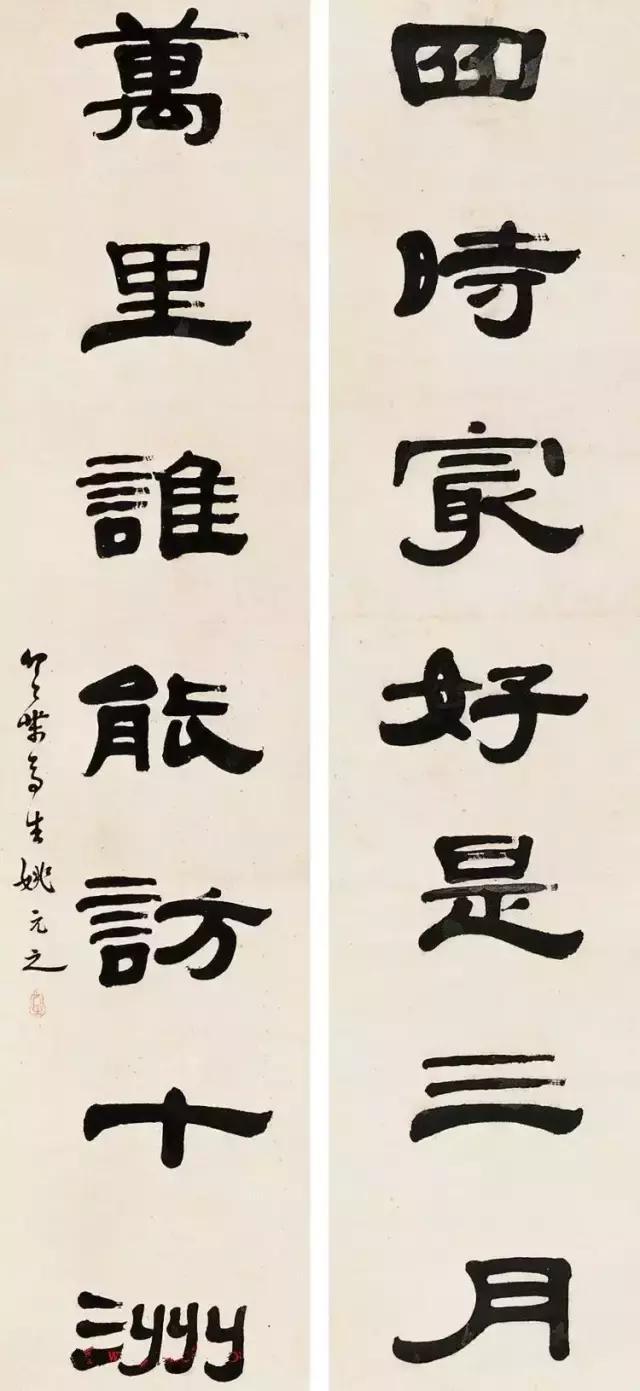 四時最好是三月
萬里誰能訪十洲
竹葉亭生姚元之